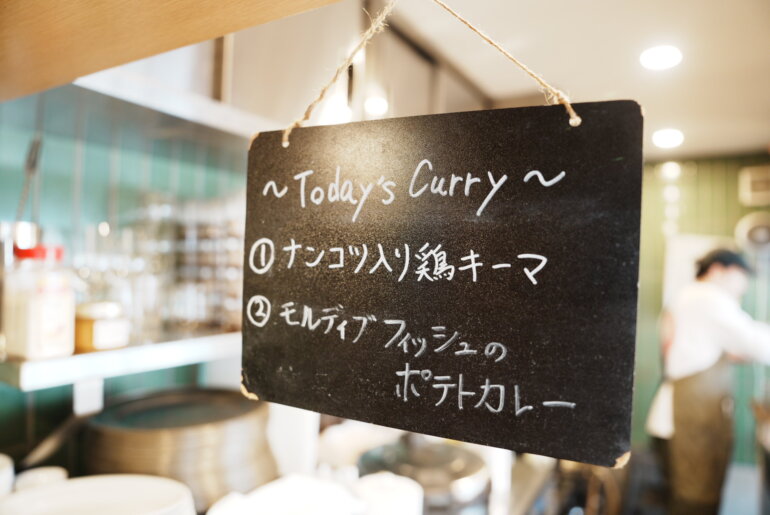 ~Today's Curry~
① ナンコツ入り鶏キーマ
② モルディブフィッシュの
ポテトカレー